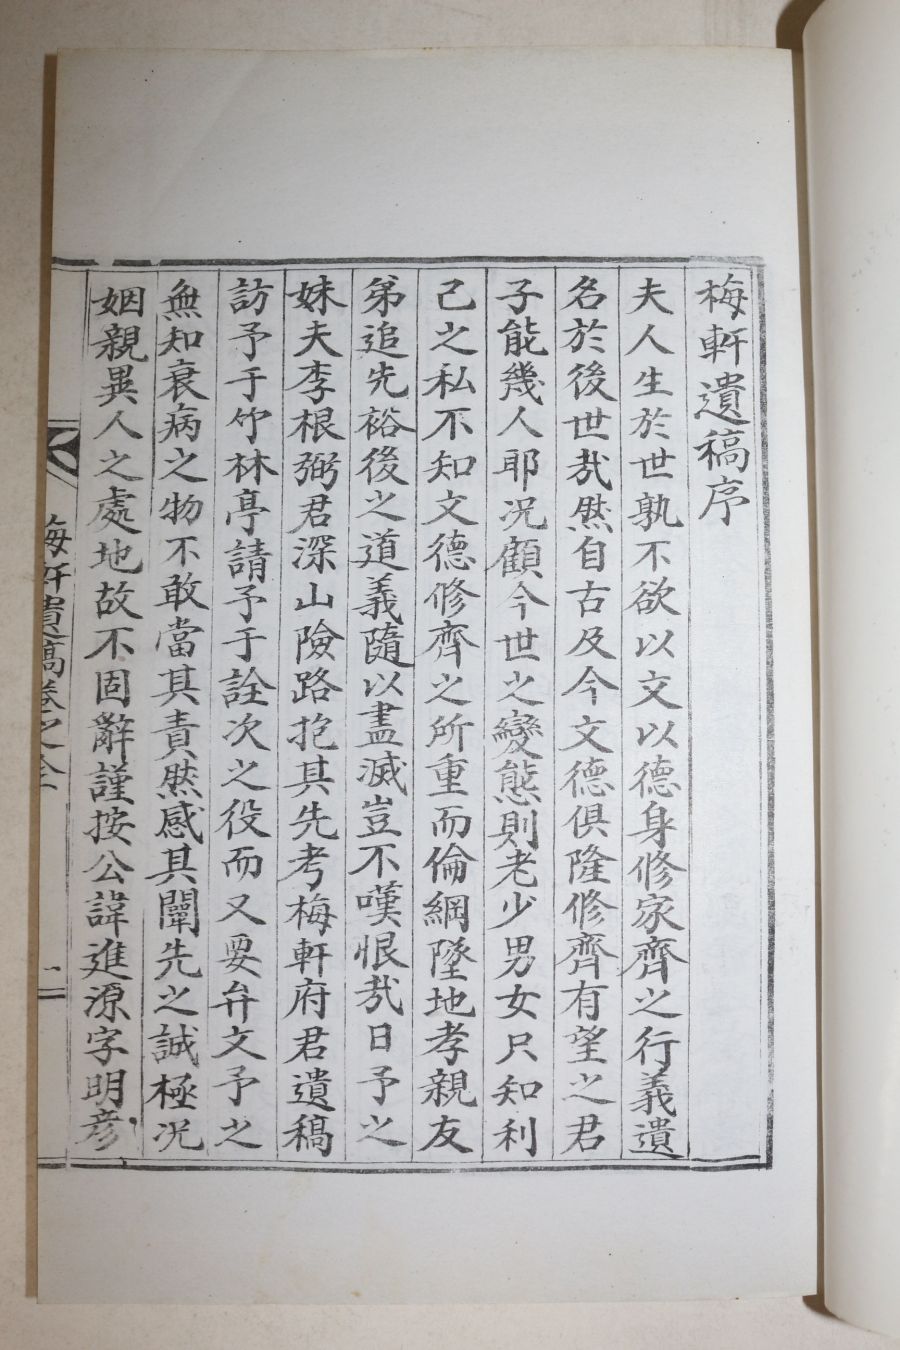 梅軒遺稿序
夫人生於世孰不欲以文以德身修家齊之行義遺
名於後世㢤然自古及今文德俱隆修齊有望之君
子能幾人耶况顧今世之變態則老少男女只知利
己之私不知文德修齊之所重而倫綱墜地孝親友
弟追先裕後之道義隨以盡滅豈不嘆恨㢤日予之
妹夫李根弼君深山險路抱其先考梅軒府君遺稿
訪予于竹林亭請予于詮次之役而又要弁文予之
無知衰病之物不敢當其責然感其闡先之誠極况
姻親異人之處地故不固辭謹按公諱進源字明彦
梅軒遺稿卷之全